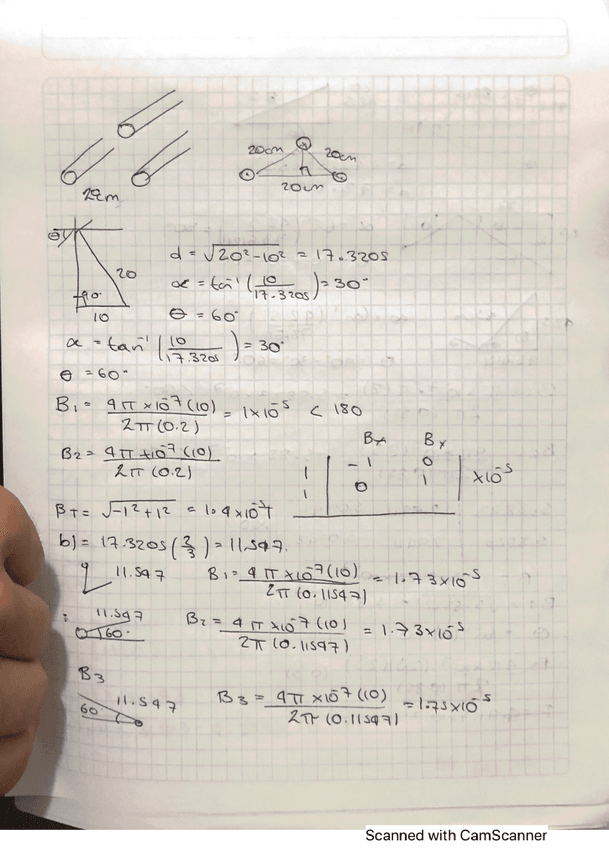 20cm 20cm
20cm
20m
θ
20
90°
10
d = √20²-10² = 17.3205
α = tan⁻¹ (10/17.3205) = 30°
θ = 60°
α = tan⁻¹ (10/17.3205) = 30°
θ = 60°
B₁ = 4π×10⁻⁷(10)/2π(0.2) = 1×10⁻⁵ < 180
B₂ = 4π×10⁻⁷(10)/2π(0.2)
Bx By
1 -1 0
1 0 1 ×10⁻⁵
BT = √-1²+1² = 1.4×10⁻⁵T
b) = 17.3205(2/3) = 11.547.
11.547 B₁ = 4π×10⁻⁷(10)/2π(0.11547) = 1.73×10⁻⁵
11.547
60° B₂ = 4π×10⁻⁷(10)/2π(0.11547) = 1.73×10⁻⁵
B3
60 11.547 B3 = 4π×10⁻⁷(10)/2π(0.11547) = 1.73×10⁻⁵
Scanned with CamScanner